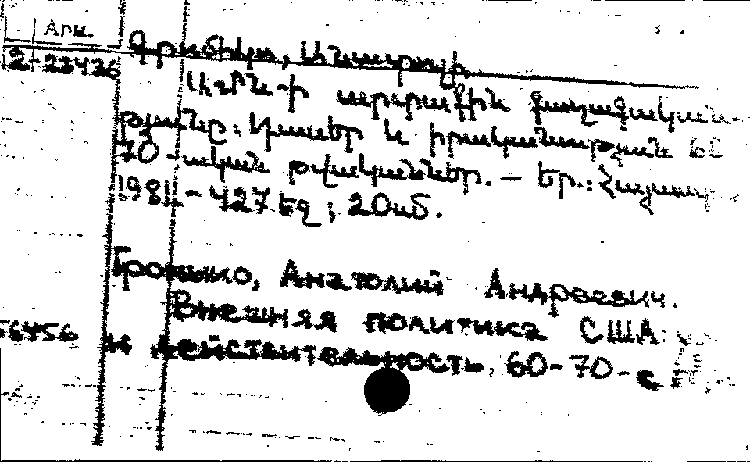 Арм.
2-23426 Գրոմիկո, Անատոլի
ԱՄՆ-ի արտաքին քաղաքականու-
թյունը: Դասեր և իրականություն 60
70-ական թվականներ. — Եր.: Հայաստ
1981 - 427 եզ ; 20սմ.
Громыко, Анатолий Андреевич.
Внешняя политика США:
56456 и действительность, 60-70-е